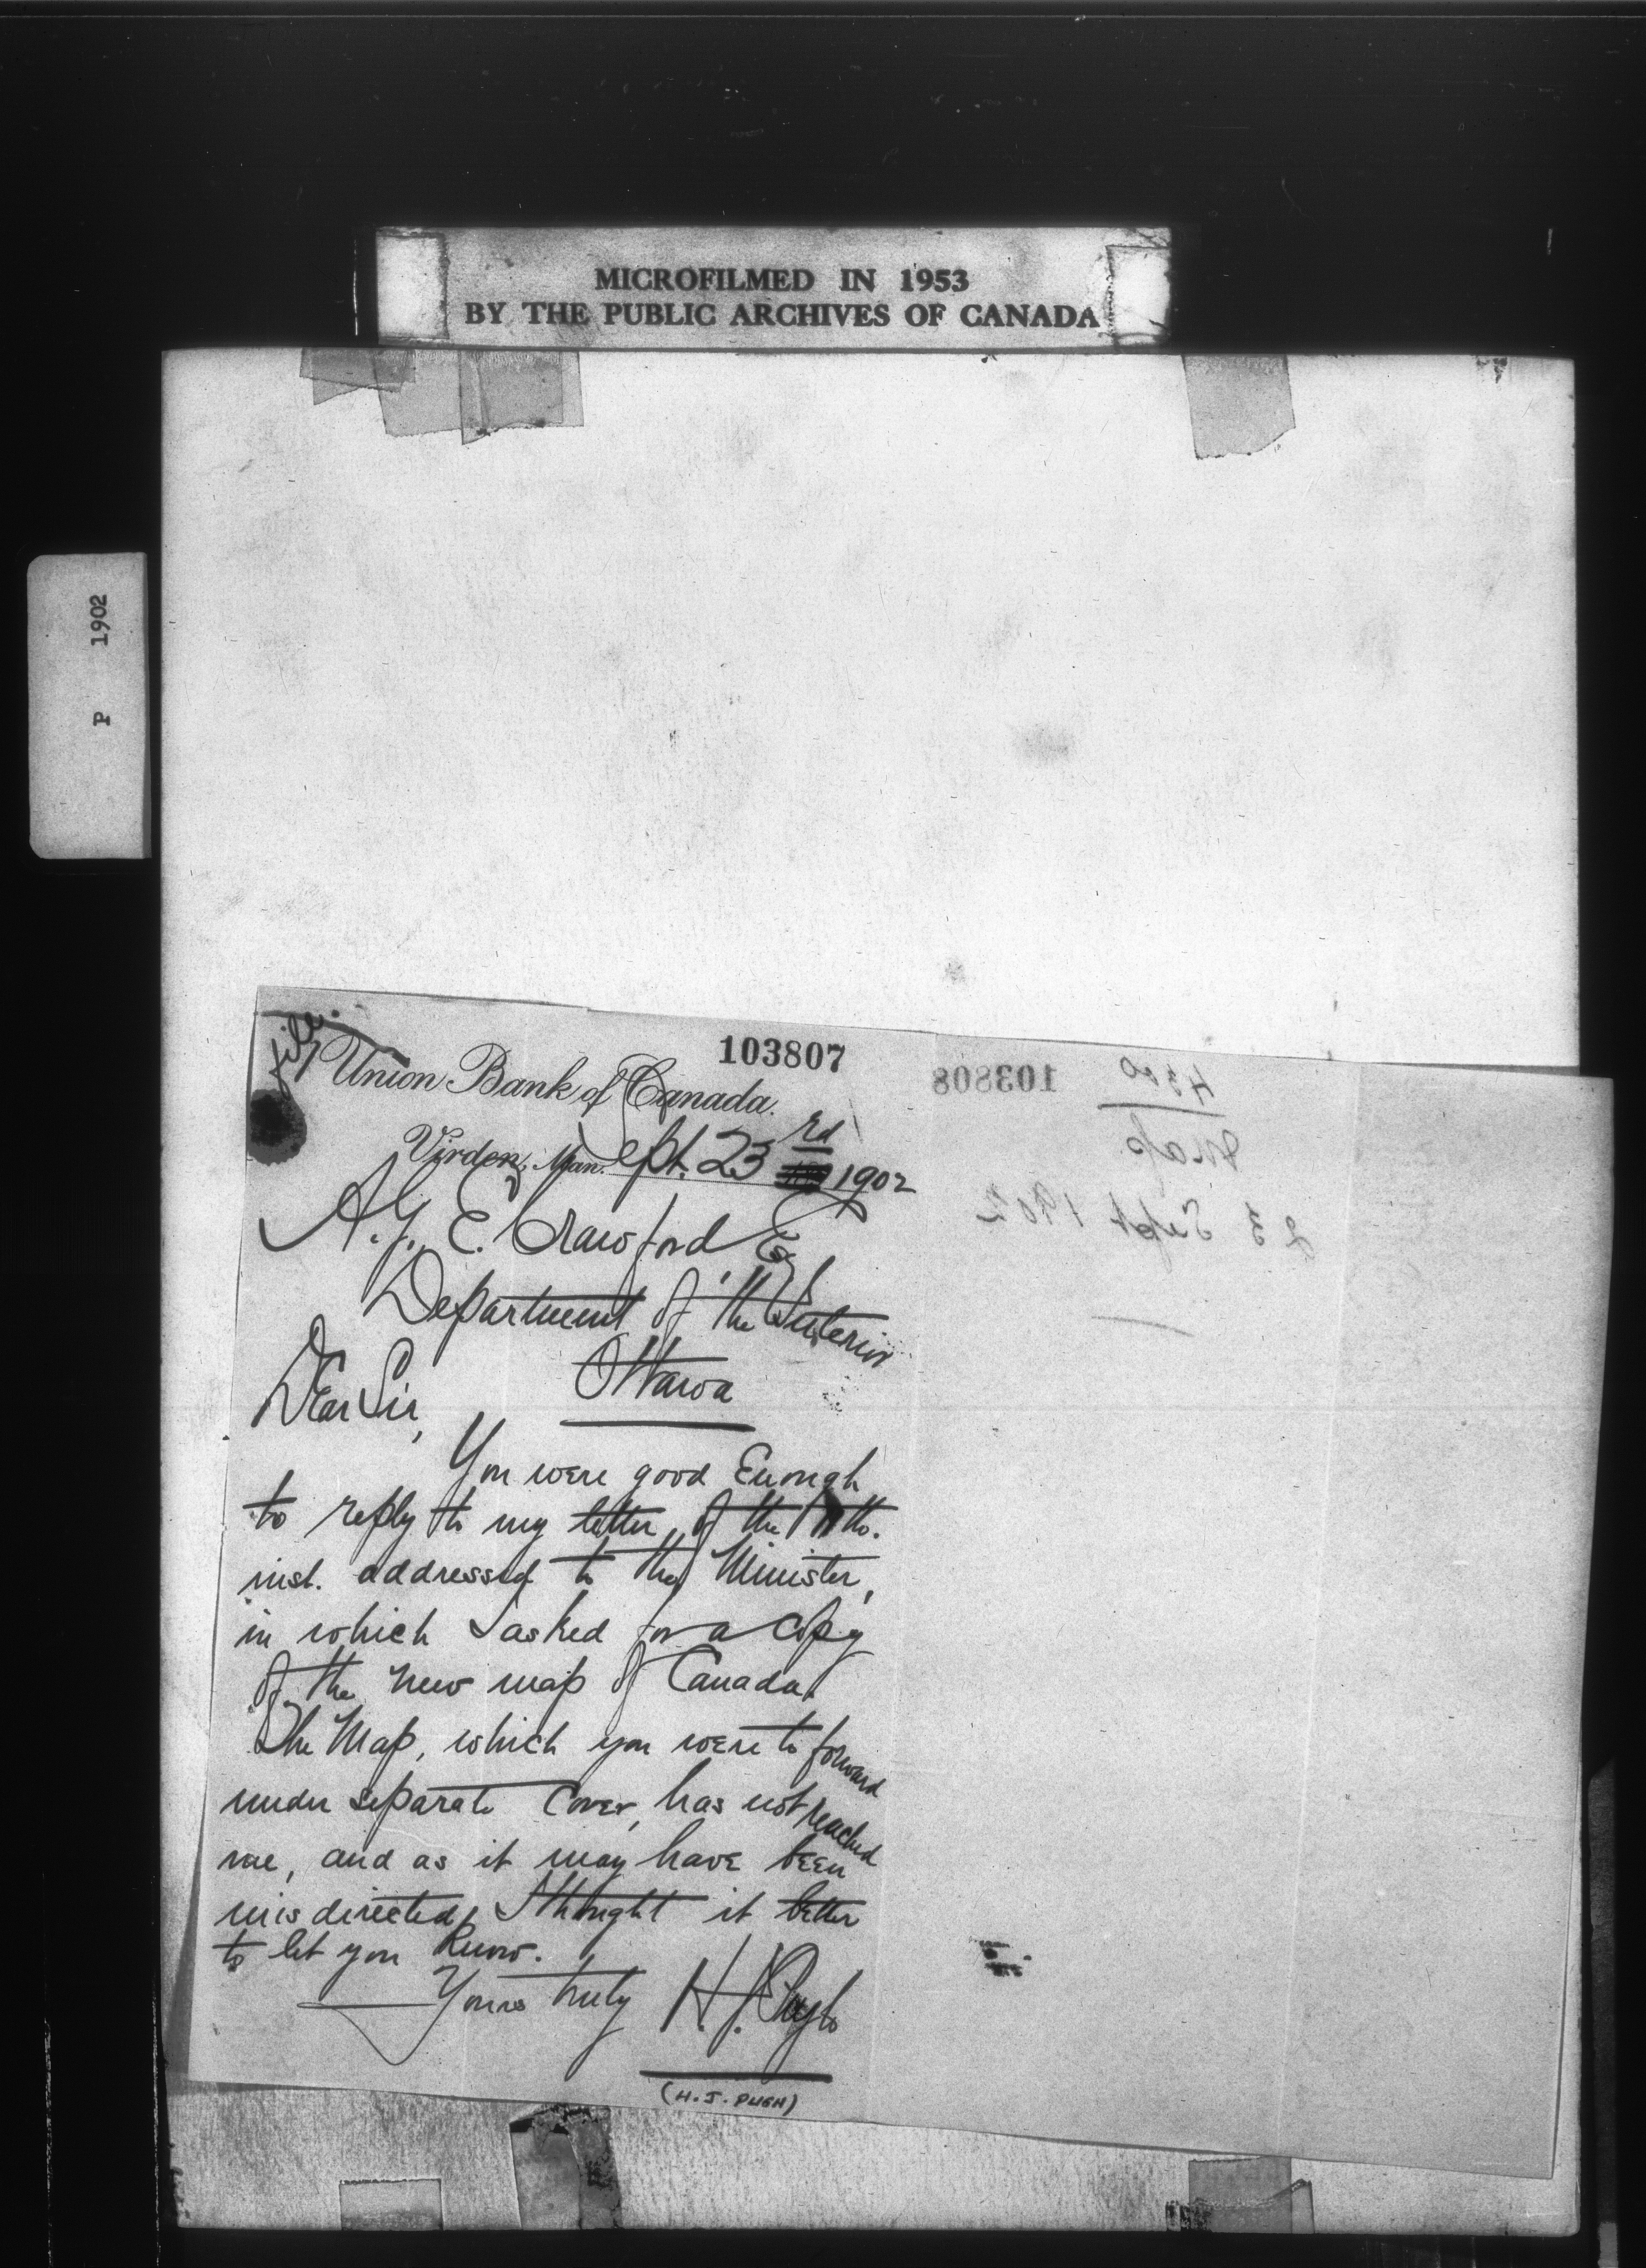 MICROFILMED IN 1953
BY THE PUBLIC ARCHIVES OF CANADA
P 1902
file.
103807
Union Bank of Canada.
Virden, Man. Sept. 23rd 1902
A. J. E. Crawford Esq
Department of the Interior
Ottawa
DEar Sir,
You were good Enough
to reply to my letter of the th.
inst. addressed to the Minister,
in which I asked for a copy
of the new map of Canada.
The Map, which you were to forward
under separate Cover, has not reached
me, and as it may have been
misdirected, I thought it better
to let you Know.
Yours truly H. J. Pugh
(H. J. PUGH)
103808
Map
23 Sept 1902